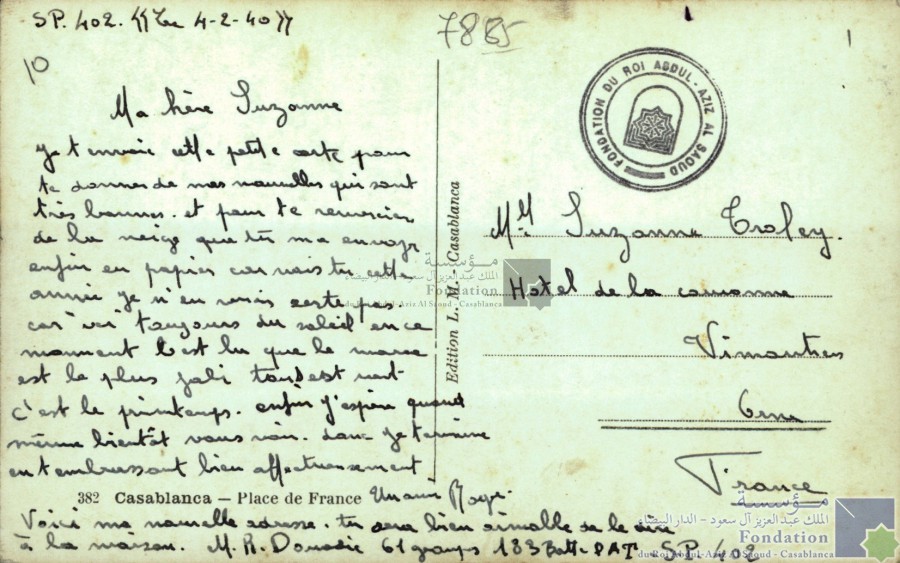 SP. 402. ((Le 4-2-40))
7885
10
FONDATION DU ROI ABDUL-AZIZ AL SAOUD
Ma chère Suzanne
Je t envoie cette petite carte pour
te donner de mes nouvelles qui sont
très bonnes. et pour te remercier
de la neige que tu ma envoyé
enfin en papier car vois tu cette
année je n'en verais certe pas.
car ici toujours du soleil en ce
moment c'est la que le maroc
est le plus joli tout est vert
c'est le printemps. enfin j'espère quand
même bientôt vous voir. donc je termine
en t embrassant bien affectueusement
Un ami Roger
Voici ma nouvelle adresse. tu sera bien aimable de le dire
à la maison. M. R. 61 183 Batt. SP. 402
382 Casablanca — Place de France
Edition L. M. - Casablanca
Mlle Suzanne Troley.
Hotel de la couronne
Vimoutiers
Orne
France
مؤسسة
الملك عبد العزيز آل سعود – الدار البيضاء
Fondation
du Roi Abdul-Aziz Al Saoud - Casablanca
مؤسسة
الملك عبد العزيز آل سعود – الدار البيضاء
Fondation
du Roi Abdul-Aziz Al Saoud - Casablanca